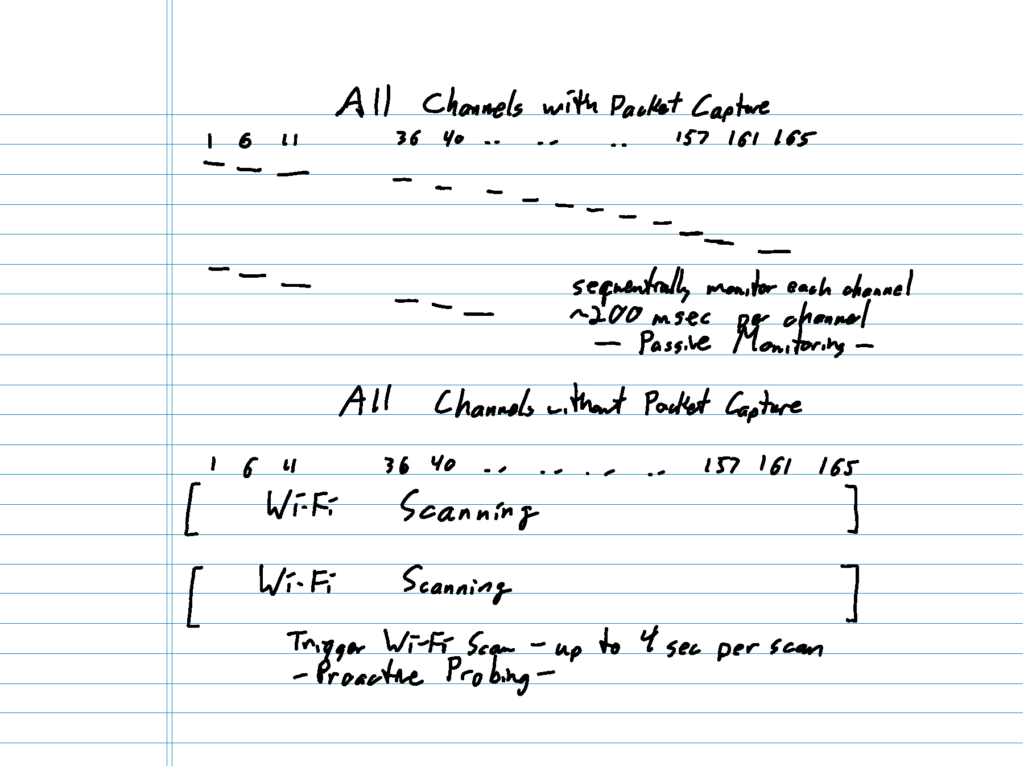 All Channels with Packet Capture
1 6 11 36 40 .. .. .. 157 161 165
sequentially monitor each channel
~200 msec per channel
- Passive Monitoring -
All Channels without Packet Capture
1 6 11 36 40 .. .. .. .. 157 161 165
[ Wi-Fi Scanning ]
[ Wi-Fi Scanning ]
Trigger Wi-Fi Scan - up to 4 sec per scan
- Proactive Probing -